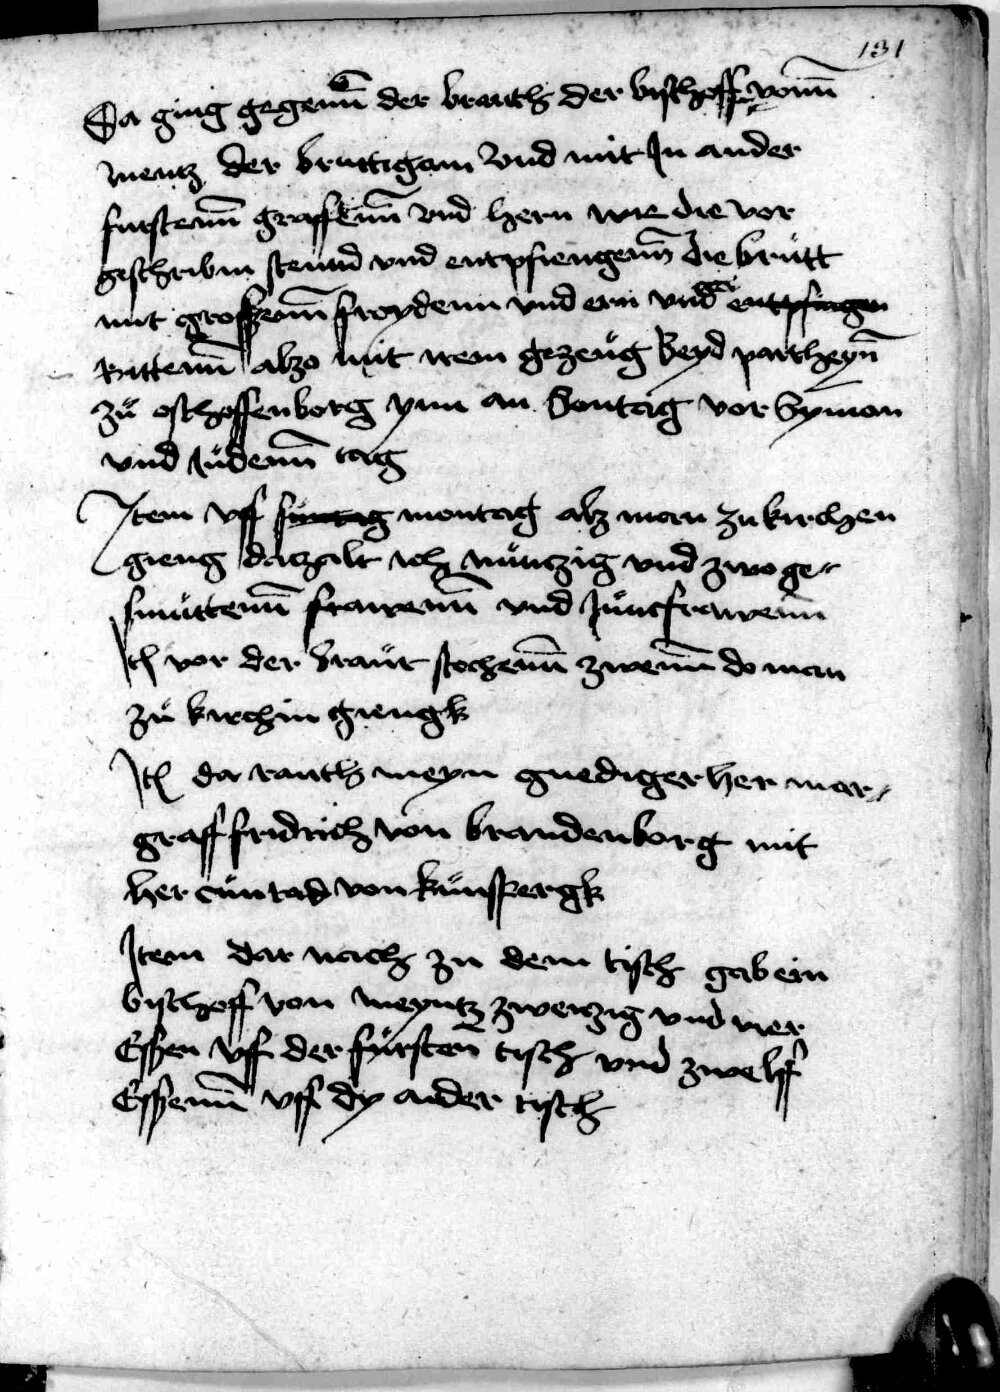 131
Da ging gegenn der brauth der bischoff vonn
mentz der bruttigam Vnd mit In ander
furstenn graffenn vnd hern wie die vor
geschribin stennd vnd entpfiengenn die brütt
mit grosszenn froydenn vnd ern vnd entpfingen
Rittenn alzo mit irem gezeüg Beyd partheyn
zü oschoffenborg ynn an Sontag vor Symon
vnd Jüdenn tag
Item vff montag alz man zu kirchen
gieng da zalt ich nüntzig vnd zwo ge-
smüttenn frawenn vnd Jünckfrawenn
Itm vor der braüt stochenn zwenn do man
zü kirchin giengk
Itm da ranth meyn gnediger her mar-
graff fridrich von brandenborg mit
her cünrad von künspergk
Item dar nach zu dem tisch gab ein
bischoff von meyntz zwenzig vnd vier
Esszen vff der fürsten tisch vnd zwelff
Esszenn vff dy ander tisch